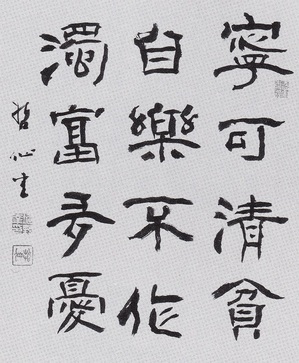 寧可清貧
自樂不作
濁富多憂
哲心書